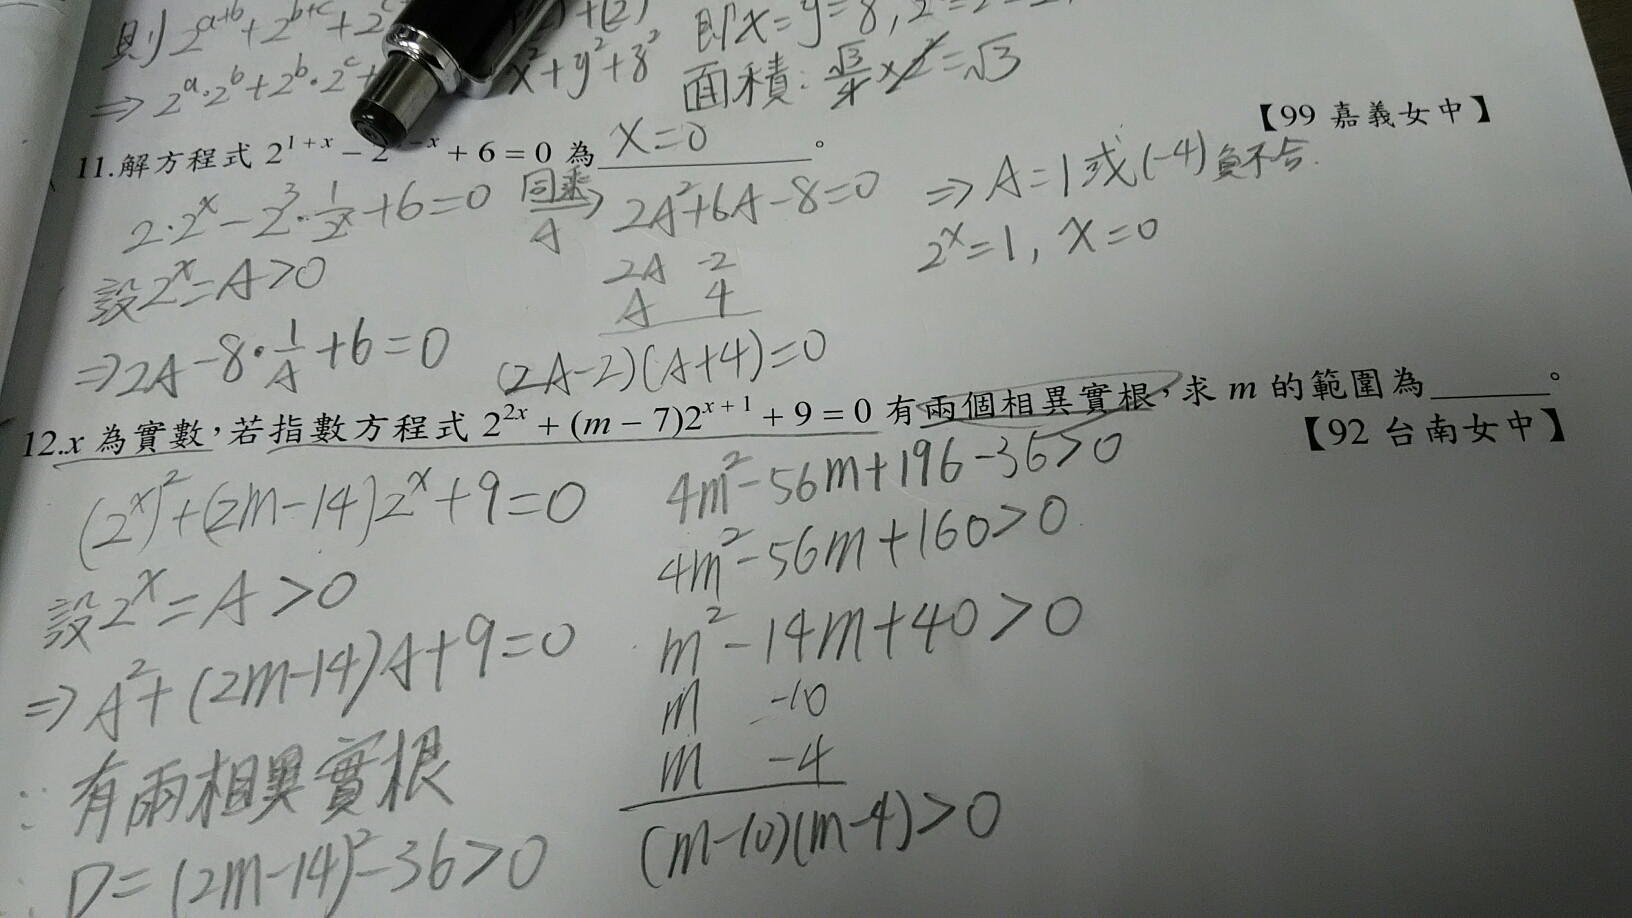 則 2^{a+b}+2^{b+c}+2^{c
⇒ 2^a·2^b+2^b·2^c+
x²+y²+z²
即x=y=8, 2
面積: √3/4×2²=√3
【99 嘉義女中】
11.解方程式 2^{1+x} − 2^{-x} + 6 = 0 為 x=0 。
2·2^x−2³·1/2^x+6=0 同乘A→ 2A²+6A−8=0 ⇒ A=1或(−4)負不合.
設2^x=A>0
2A −2
A 4
2^x=1, x=0
⇒2A−8·1/A+6=0
(2A−2)(A+4)=0
12.x 為實數,若指數方程式 2^{2x} + (m − 7)2^{x+1} + 9 = 0 有兩個相異實根,求 m 的範圍為______。
【92 台南女中】
(2^x)²+(2m−14)2^x+9=0
設2^x=A>0
⇒A²+(2m−14)A+9=0
∵有兩相異實根
D=(2m−14)²−36>0
4m²−56m+196−36>0
4m²−56m+160>0
m²−14m+40>0
m −10
m −4
(m−10)(m−4)>0